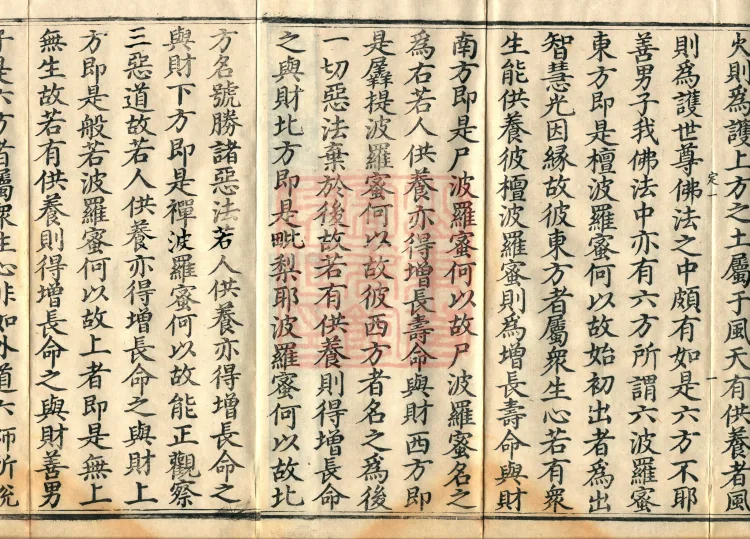 火則爲護上方之土屬于風天有供養者風
定一
一
則爲護世尊佛法之中頗有如是六方不耶
善男子我佛法中亦有六方所謂六波羅蜜
東方即是檀波羅蜜何以故始初出者爲出
智慧光因緣故彼東方者屬衆生心若有衆
生能供養彼檀波羅蜜則爲增長壽命與財
南方即是尸波羅蜜何以故尸波羅蜜名之
爲右若人供養亦得增長壽命與財西方即
是羼提波羅蜜何以故彼西方者名之爲後
一切惡法棄於後故若有供養則得增長命
之與財北方即是毗梨耶波羅蜜何以故北
方名號勝諸惡法若人供養亦得增長命之
與財下方即是禪波羅蜜何以故能正觀察
三惡道故若人供養亦得增長命之與財上
方即是般若波羅蜜何以故上者即是無上
無生故若有供養則得增長命之與財善男
子是六方者屬衆生心非如外道六師所說